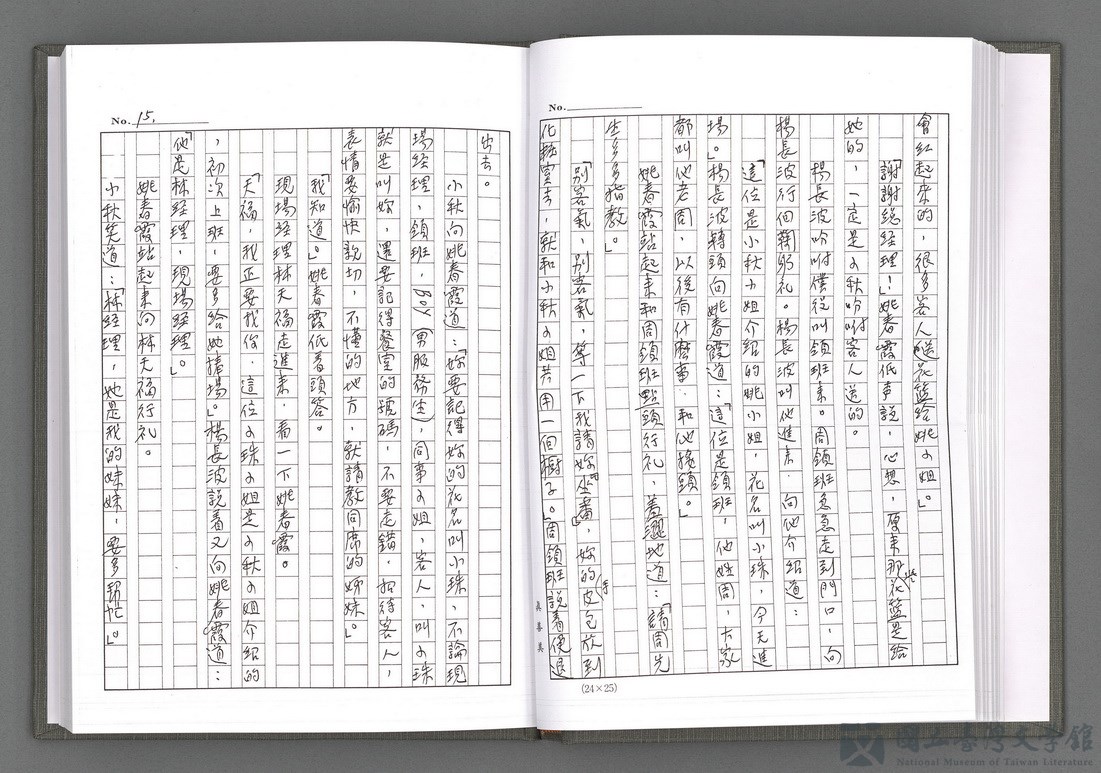 No.
會紅起來的，很多客人送花籃給姚小姐。」
「謝謝總經理！」姚春霞低声說，心想，原來那些花籃是給
她的，一定是小秋吩咐客人送的。
楊長波吩咐僕從叫領班來。周領班急急走到門口，向
楊長波行個鞠躬礼。楊長波叫他進來，向他介紹道：
「這位是小秋小姐介紹的姚小姐，花名叫小珠，今天進
場。」楊長波轉頭向姚春霞道：「這位是領班，他姓周，大家
都叫他老周，以後有什麼事，和他接頭。」
姚春霞站起來和周領班點頭行礼，羞澀地道：「請周先
生多多指教。」
「別客氣，別客氣，等一下我請妳坐番，妳的手皮包放到
化粧室去，就和小秋小姐共用一個櫥子。」周領班說着便退
(24×25)
No. 15.
出去。
小秋向姚春霞道：「妳要記得妳的花名叫小珠，不論現
場經理，領班，boy（男服務生），同事小姐，客人，叫小珠
就是叫妳，還要記得餐室的號碼，不要走錯，招待客人，
表情要愉快親切，不懂的地方，就請教同席的姊妹。」
「我知道。」姚春霞低着頭答。
現場經理林天福走進來，看一下姚春霞。
「天福，我正要找你，這位小珠小姐是小秋小姐介紹的
，初次上班，要多給她捧場。」楊長波說着又向姚春霞道：
「他是林經理，現場經理。」
姚春霞站起來向林天福行礼。
小秋笑道：「林經理，她是我的妹妹，要多幫忙。」
國立臺灣文學館
National Museum of Taiwan Literature